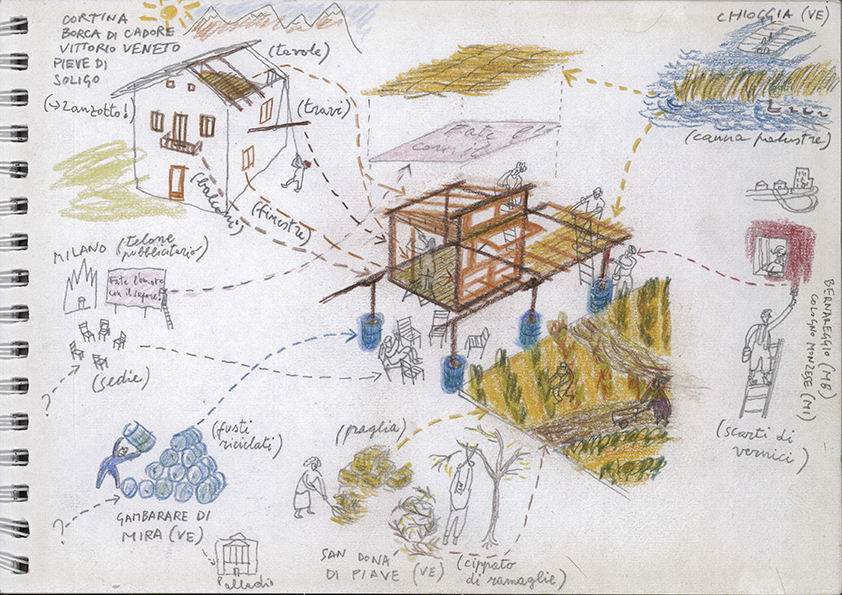 CORTINA
BORCA DI CADORE
VITTORIO VENETO
PIEVE DI
SOLIGO
(→ Zanzotto!)
(tavole)
(travi)
(balconi)
(finestre)
CHIOGGIA (VE)
(canna palustre)
Fate l'
con il
MILANO (telone
pubblicitario)
Fate l'amore
con il sapore!
(sedie)
?
BERNAREGGIO (MB)
COLOGNO MONZESE (MI)
(scarti di
vernici)
(fusti
riciclati)
(paglia)
?
GAMBARARE DI
MIRA (VE)
Palladio
SAN DONA
DI PIAVE (VE)
(cippato
di ramaglie)